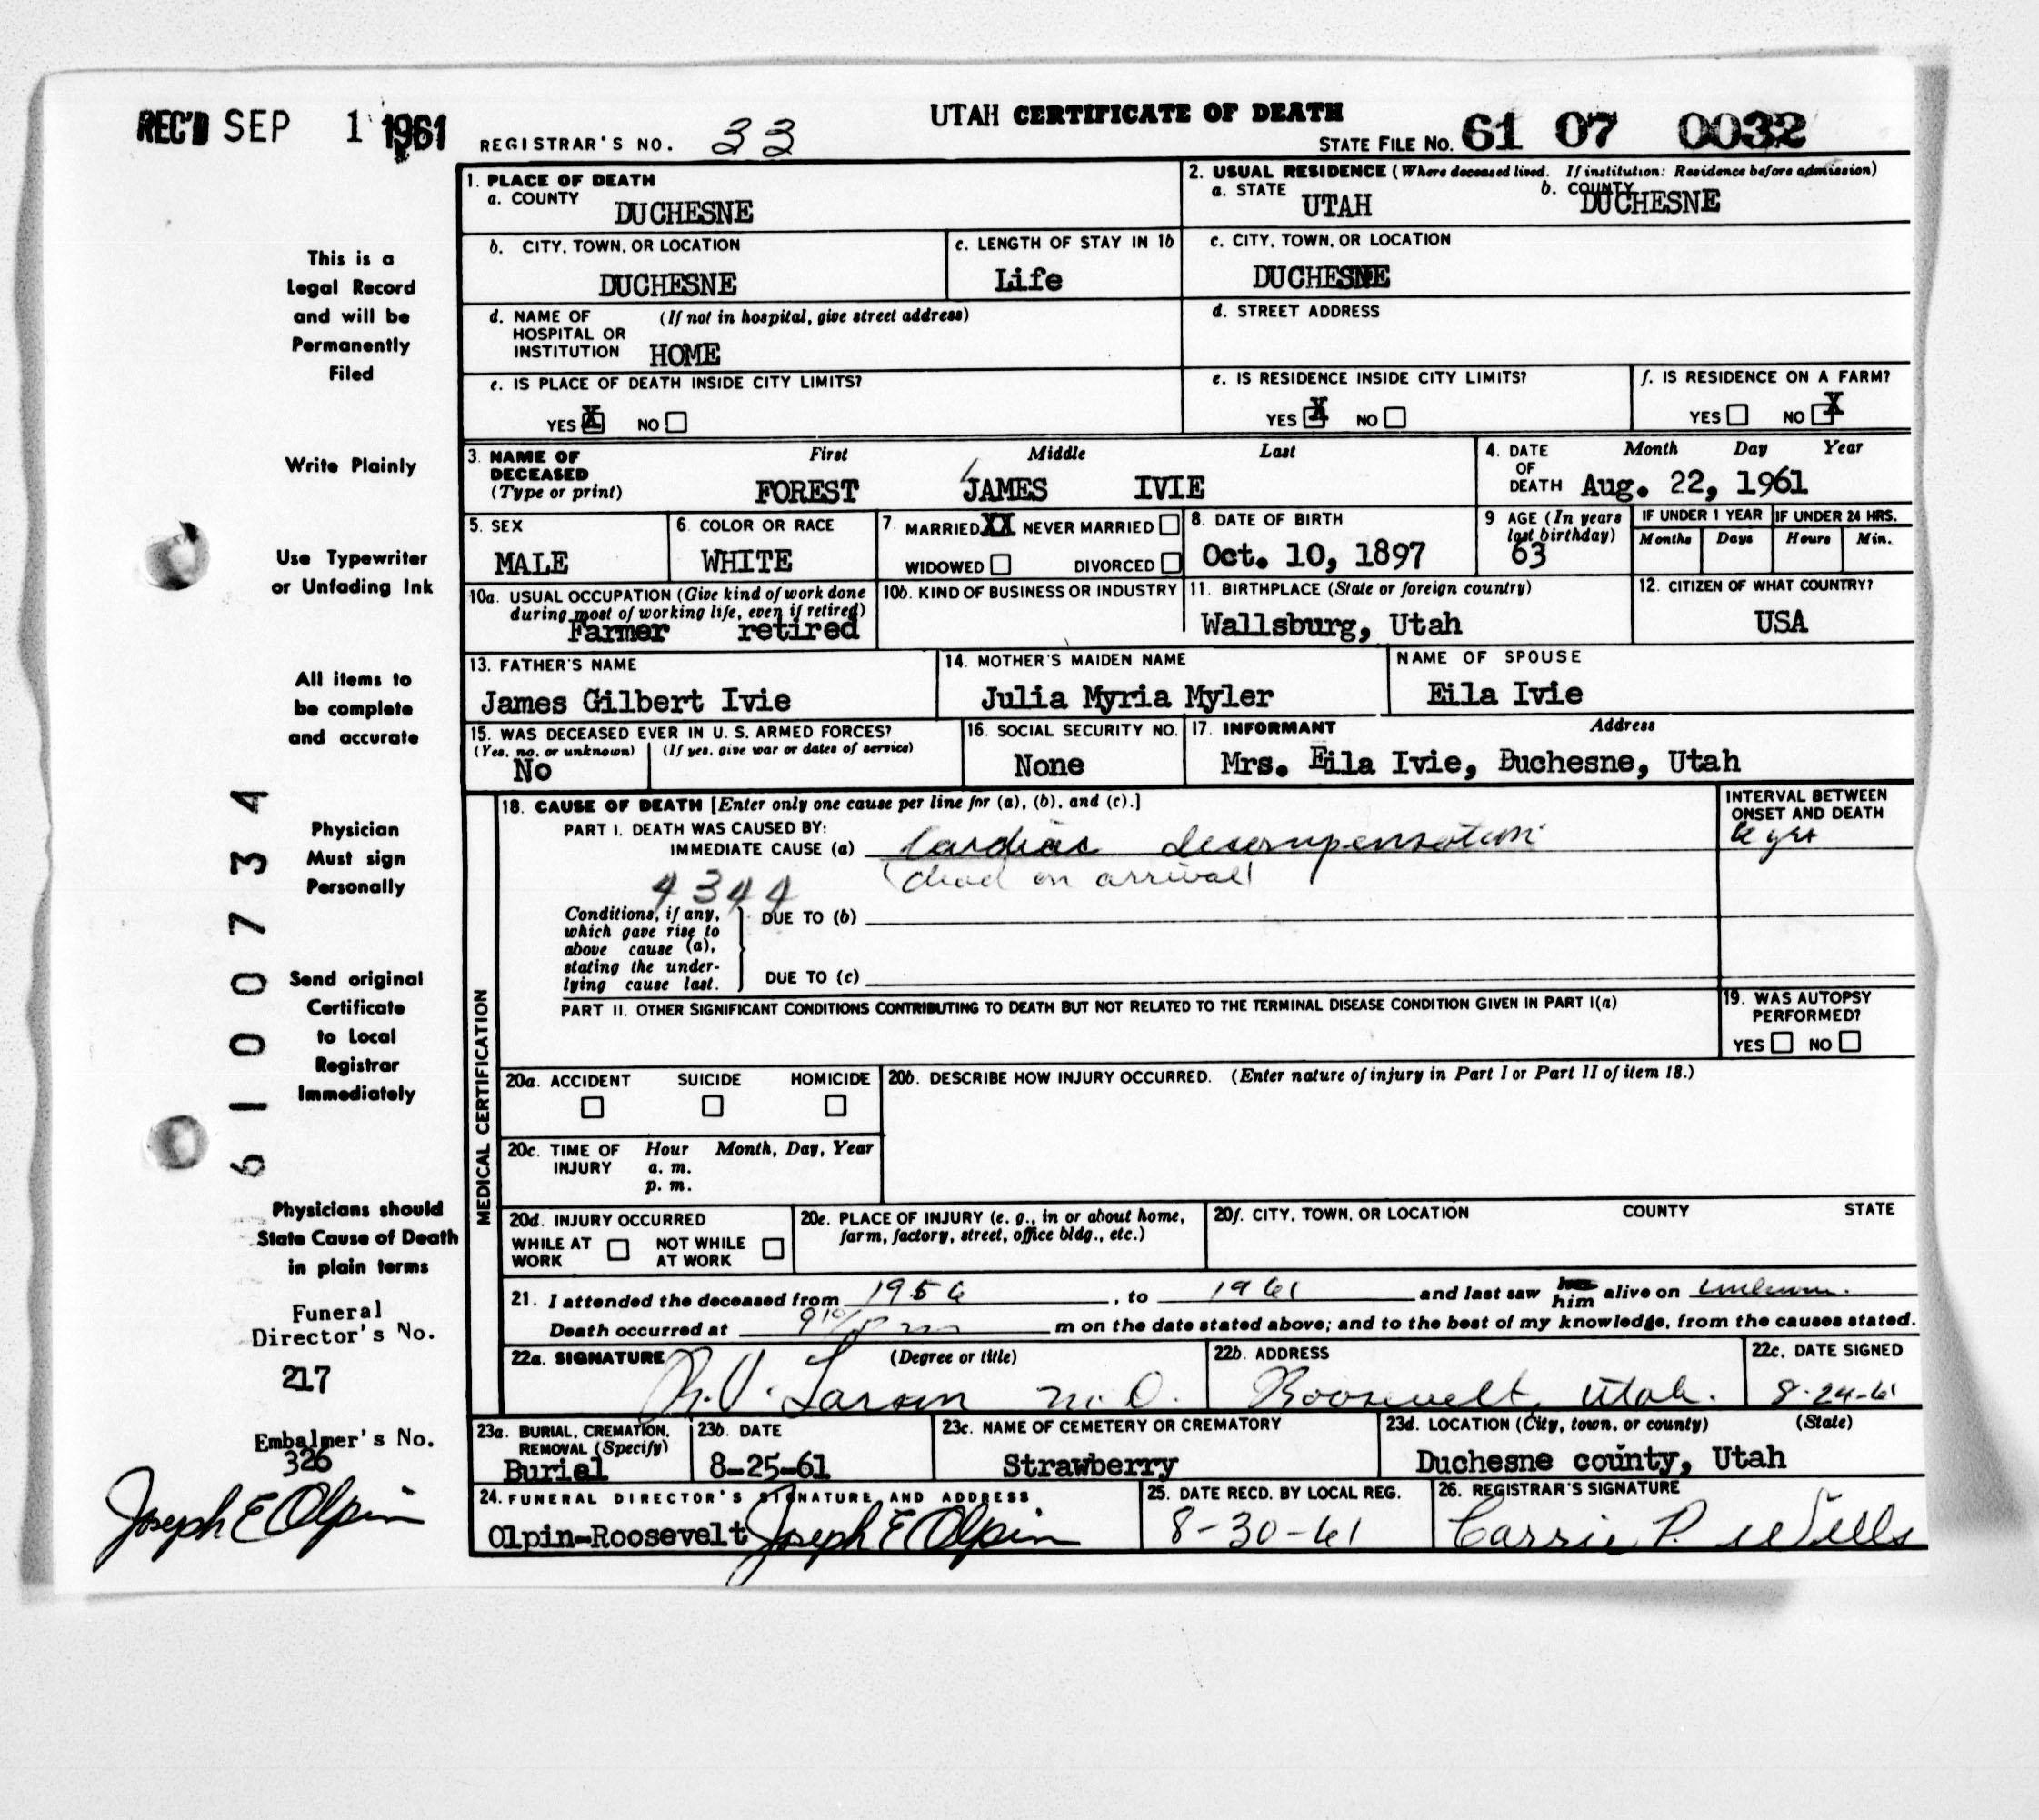 REC'D SEP 1 1961
UTAH CERTIFICATE OF DEATH
REGISTRAR'S NO. 33
STATE FILE NO. 61 07 0032
This is a
Legal Record
and will be
Permanently
Filed
Write Plainly
Use Typewriter
or Unfading Ink
All items to
be complete
and accurate
Physician
Must sign
Personally
Send original
Certificate
to Local
Registrar
Immediately
Physicians should
State Cause of Death
in plain terms
Funeral
Director's No.
217
Embalmer's No.
326
Joseph E Olpin
6100734
1. PLACE OF DEATH
a. COUNTY
DUCHESNE
2. USUAL RESIDENCE (Where deceased lived. If institution: Residence before admission)
a. STATE UTAH b. COUNTY DUCHESNE
b. CITY, TOWN, OR LOCATION
DUCHESNE
c. LENGTH OF STAY IN 1b
Life
c. CITY, TOWN, OR LOCATION
DUCHESNE
d. NAME OF (If not in hospital, give street address)
HOSPITAL OR
INSTITUTION HOME
d. STREET ADDRESS
e. IS PLACE OF DEATH INSIDE CITY LIMITS?
YES X NO
e. IS RESIDENCE INSIDE CITY LIMITS?
YES X NO
f. IS RESIDENCE ON A FARM?
YES NO X
3. NAME OF DECEASED (Type or print)
First Middle Last
FOREST JAMES IVIE
4. DATE OF DEATH Month Day Year
Aug. 22, 1961
5. SEX
MALE
6. COLOR OR RACE
WHITE
7. MARRIED XX NEVER MARRIED
WIDOWED DIVORCED
8. DATE OF BIRTH
Oct. 10, 1897
9 AGE (In years last birthday)
63
IF UNDER 1 YEAR IF UNDER 24 HRS.
Months Days Hours Min.
10a. USUAL OCCUPATION (Give kind of work done
during most of working life, even if retired)
Farmer retired
10b. KIND OF BUSINESS OR INDUSTRY
11. BIRTHPLACE (State or foreign country)
Wallsburg, Utah
12. CITIZEN OF WHAT COUNTRY?
USA
13. FATHER'S NAME
James Gilbert Ivie
14. MOTHER'S MAIDEN NAME
Julia Myria Myler
NAME OF SPOUSE
Eila Ivie
15. WAS DECEASED EVER IN U. S. ARMED FORCES?
(Yes, no, or unknown) (If yes, give war or dates of service)
No
16. SOCIAL SECURITY NO.
None
17. INFORMANT Address
Mrs. Eila Ivie, Duchesne, Utah
MEDICAL CERTIFICATION
18. CAUSE OF DEATH [Enter only one cause per line for (a), (b), and (c).]
INTERVAL BETWEEN
ONSET AND DEATH
PART I. DEATH WAS CAUSED BY:
IMMEDIATE CAUSE (a) Cardiac decompensation yrs
(dead on arrival)
4344
Conditions, if any,
which gave rise to
above cause (a),
stating the under-
lying cause last.
DUE TO (b)
DUE TO (c)
PART II. OTHER SIGNIFICANT CONDITIONS CONTRIBUTING TO DEATH BUT NOT RELATED TO THE TERMINAL DISEASE CONDITION GIVEN IN PART I(a)
19. WAS AUTOPSY
PERFORMED?
YES NO
20a. ACCIDENT SUICIDE HOMICIDE
20b. DESCRIBE HOW INJURY OCCURRED. (Enter nature of injury in Part I or Part II of item 18.)
20c. TIME OF INJURY Hour Month, Day, Year
a. m.
p. m.
20d. INJURY OCCURRED
WHILE AT WORK NOT WHILE AT WORK
20e. PLACE OF INJURY (e. g., in or about home,
farm, factory, street, office bldg., etc.)
20f. CITY, TOWN, OR LOCATION COUNTY STATE
21. I attended the deceased from 1956, to 1961 and last saw him alive on unknown.
Death occurred at 9 10 p m m on the date stated above; and to the best of my knowledge, from the causes stated.
22a. SIGNATURE (Degree or title)
R.V. Larsen M.D.
22b. ADDRESS
Roosevelt, Utah.
22c. DATE SIGNED
8-24-61
23a. BURIAL, CREMATION,
REMOVAL (Specify)
Burial
23b. DATE
8-25-61
23c. NAME OF CEMETERY OR CREMATORY
Strawberry
23d. LOCATION (City, town, or county) (State)
Duchesne county, Utah
24. FUNERAL DIRECTOR'S SIGNATURE AND ADDRESS
Olpin-Roosevelt Joseph E Olpin
25. DATE RECD. BY LOCAL REG.
8-30-61
26. REGISTRAR'S SIGNATURE
Carrie P. Wills